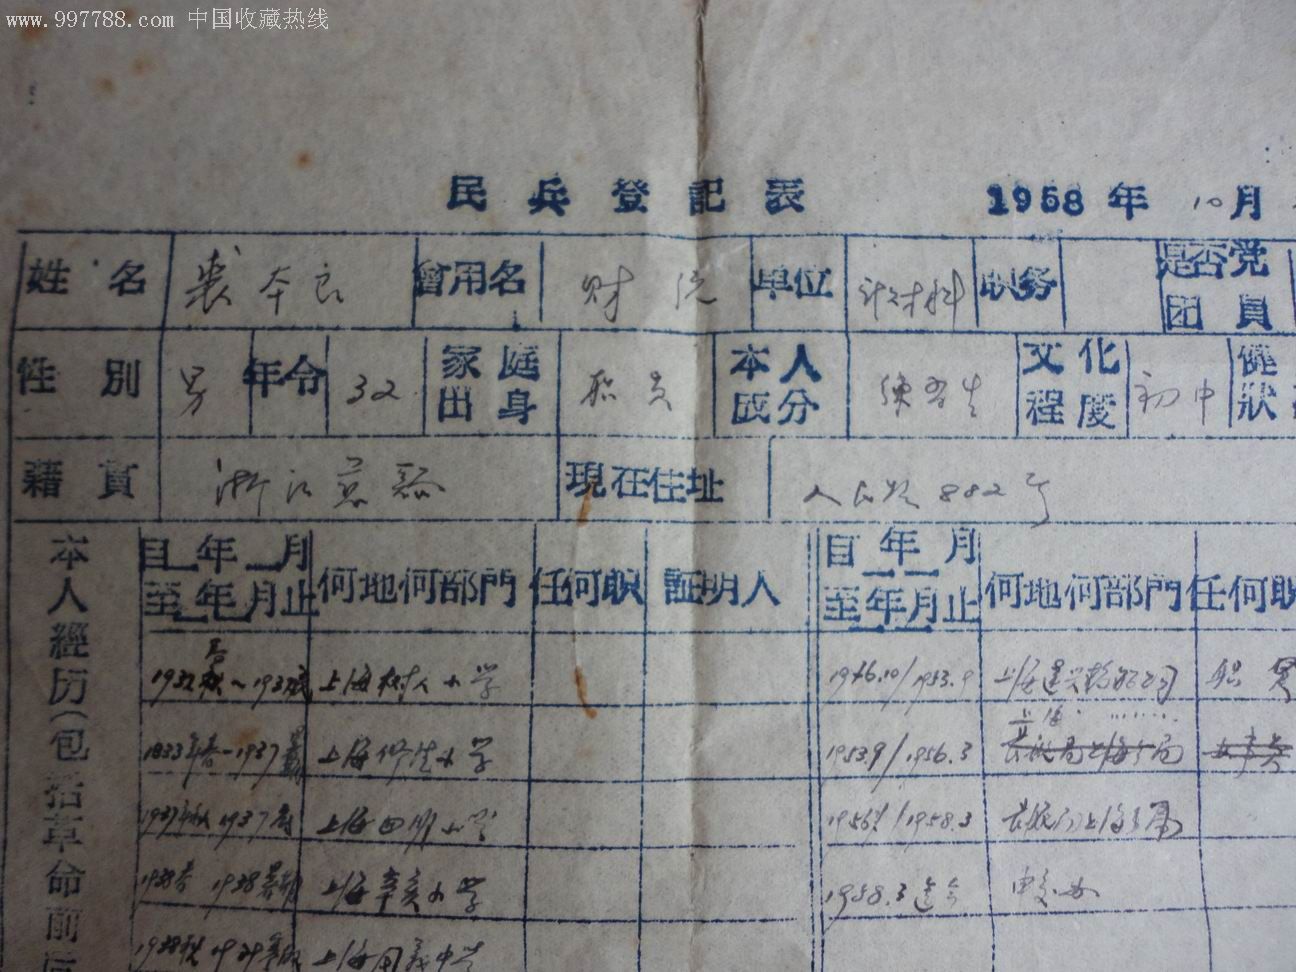 www.997788.com 中国收藏热线
民兵登記表 1958年 10月
姓名 裘本良 曾用名 财 单位 计材料 职务 是否党团員
性別 男 年令 32 家庭出身 职员 本人成分 练習生 文化程度 初中 健 狀
籍貫 浙江慈谿 現在住址 人民路882号
本人經历(包括革命前后
自年月至年月止 何地何部門 任何职 証明人 自年月至年月止 何地何部門 任何职
1932 ~1932 上海树人小学 1946.10/1953.9 上海 公司 职員
1933年春-1937 上海 小学 1953.9/1956.3 上海 局
1937年秋 1937 上海四明小学 1956 /1958.3 长航 上海分局
1938春 1938暑期 上海辛亥小学 1958.3迄今
1938秋 上海 中学